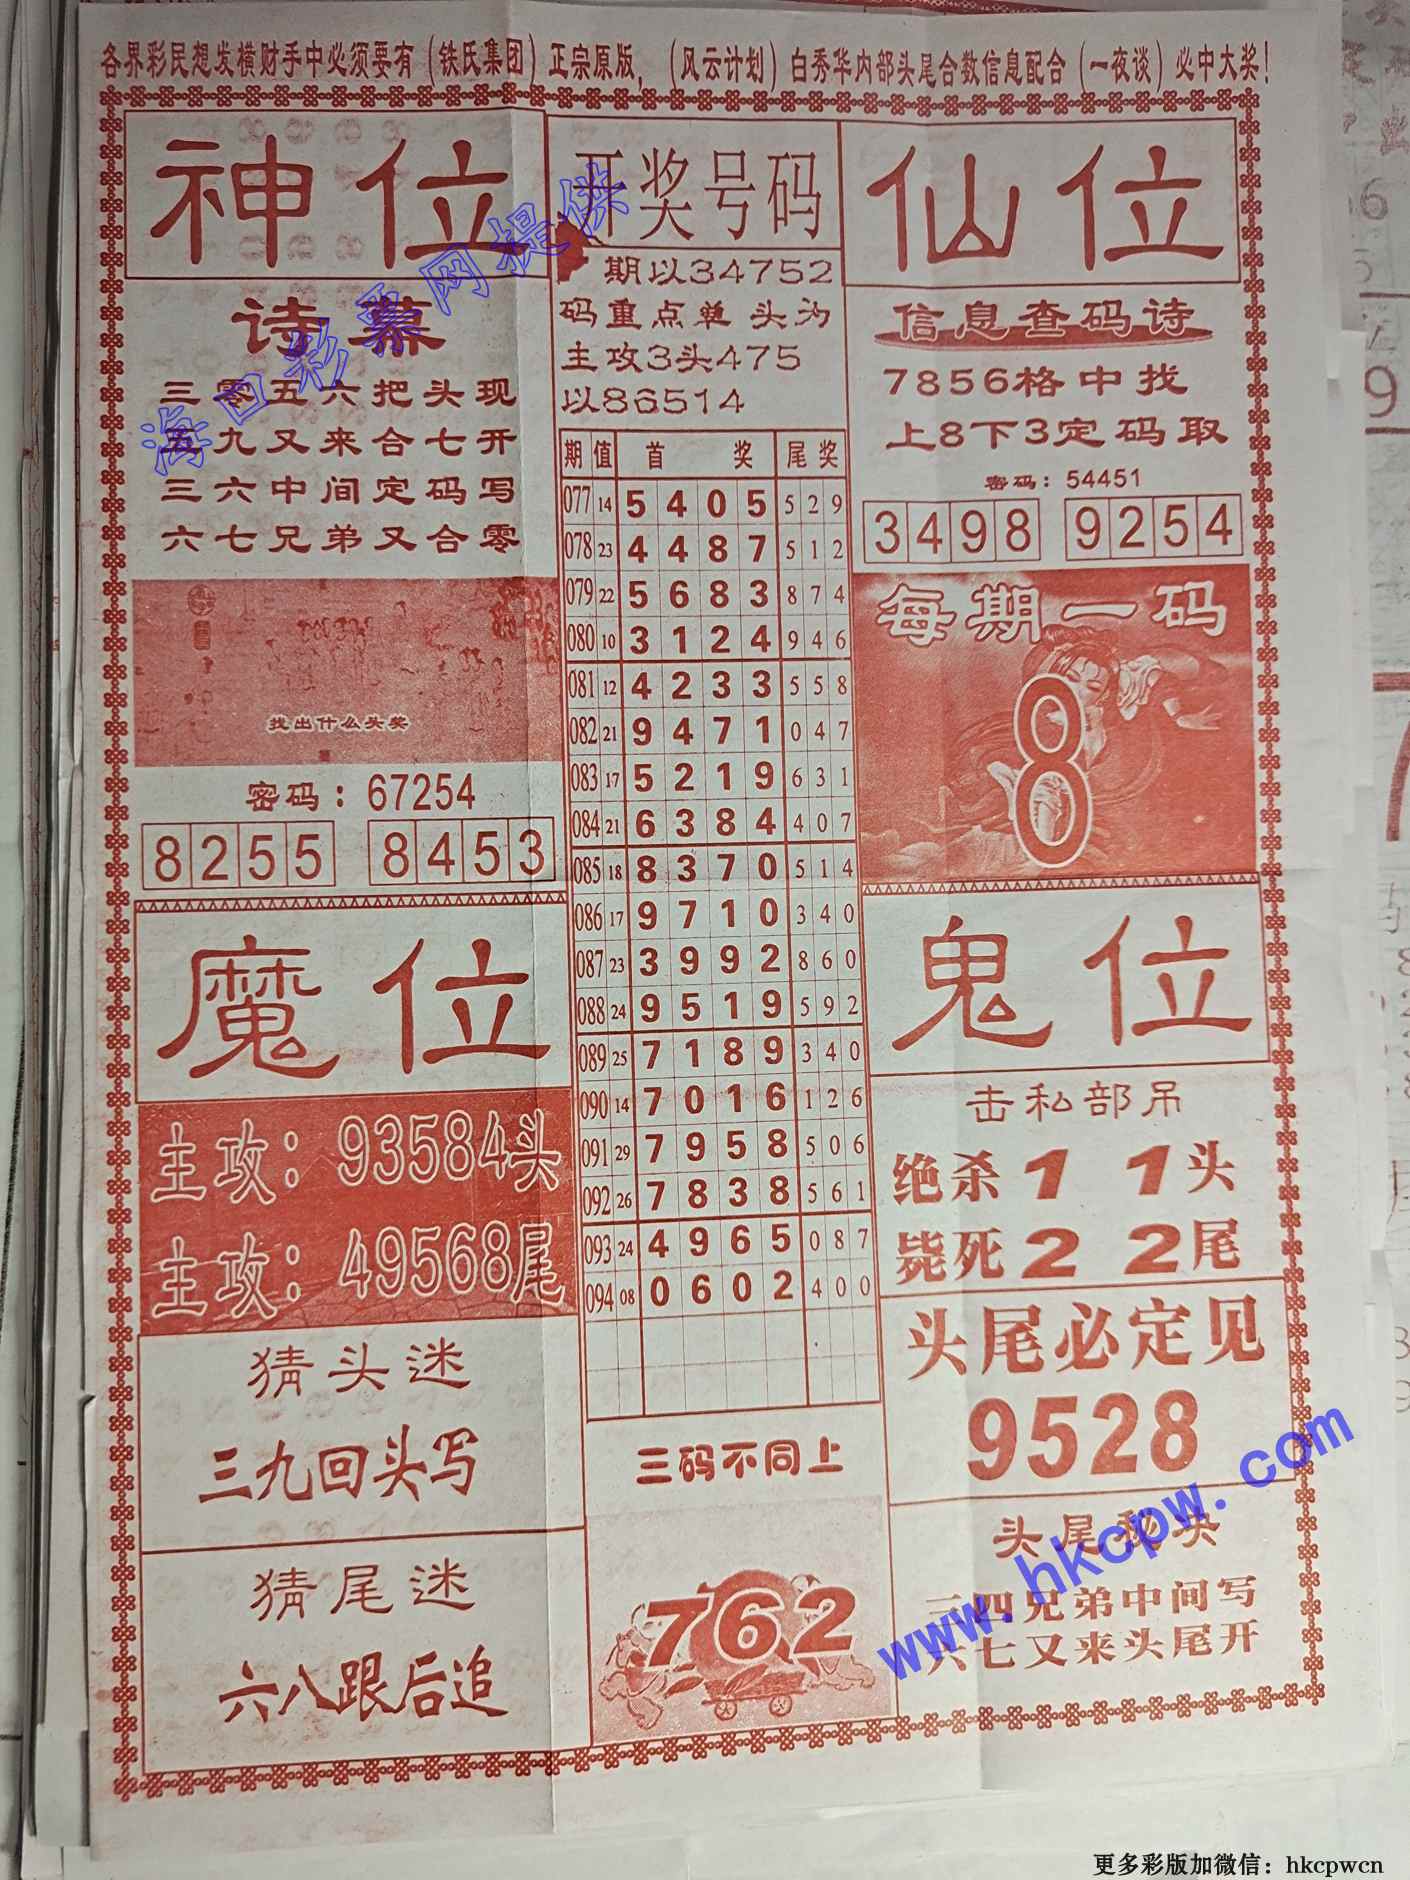 各界彩民想发横财手中必须要有（铁氏集团）正宗原版，（风云计划）白秀华内部头尾合数信息配合（一夜谈）必中大奖！
神位
诗幕
三零五六把头现
五九又来合七开
三六中间定码写
六七兄弟又合零
找出什么头奖
密码：67254
8255 8453
魔位
主攻：93584头
主攻：49568尾
猜头迷
三九回头写
猜尾迷
六八跟后追
开奖号码
期以34752
码重点单 头为
主攻3头475
以86514
期 值 首奖 尾奖
077 14 5405 529
078 23 4487 512
079 22 5683 874
080 10 3124 946
081 12 4233 558
082 21 9471 047
083 17 5219 631
084 21 6384 407
085 18 8370 514
086 17 9710 340
087 23 3992 860
088 24 9519 592
089 25 7189 340
090 14 7016 126
091 29 7958 506
092 26 7838 561
093 24 4965 087
094 08 0602 400
三码不同上
762
仙位
信息查码诗
7856格中找
上8下3定码取
密码：54451
3498 9254
每期一码
8
鬼位
击私部吊
绝杀1 1头
毙死2 2尾
头尾必定见
9528
头尾秘决
三四兄弟中间写
六七又来头尾开
海口彩票网提供
www.hkcpw.com
更多彩版加微信：hkcpwcn